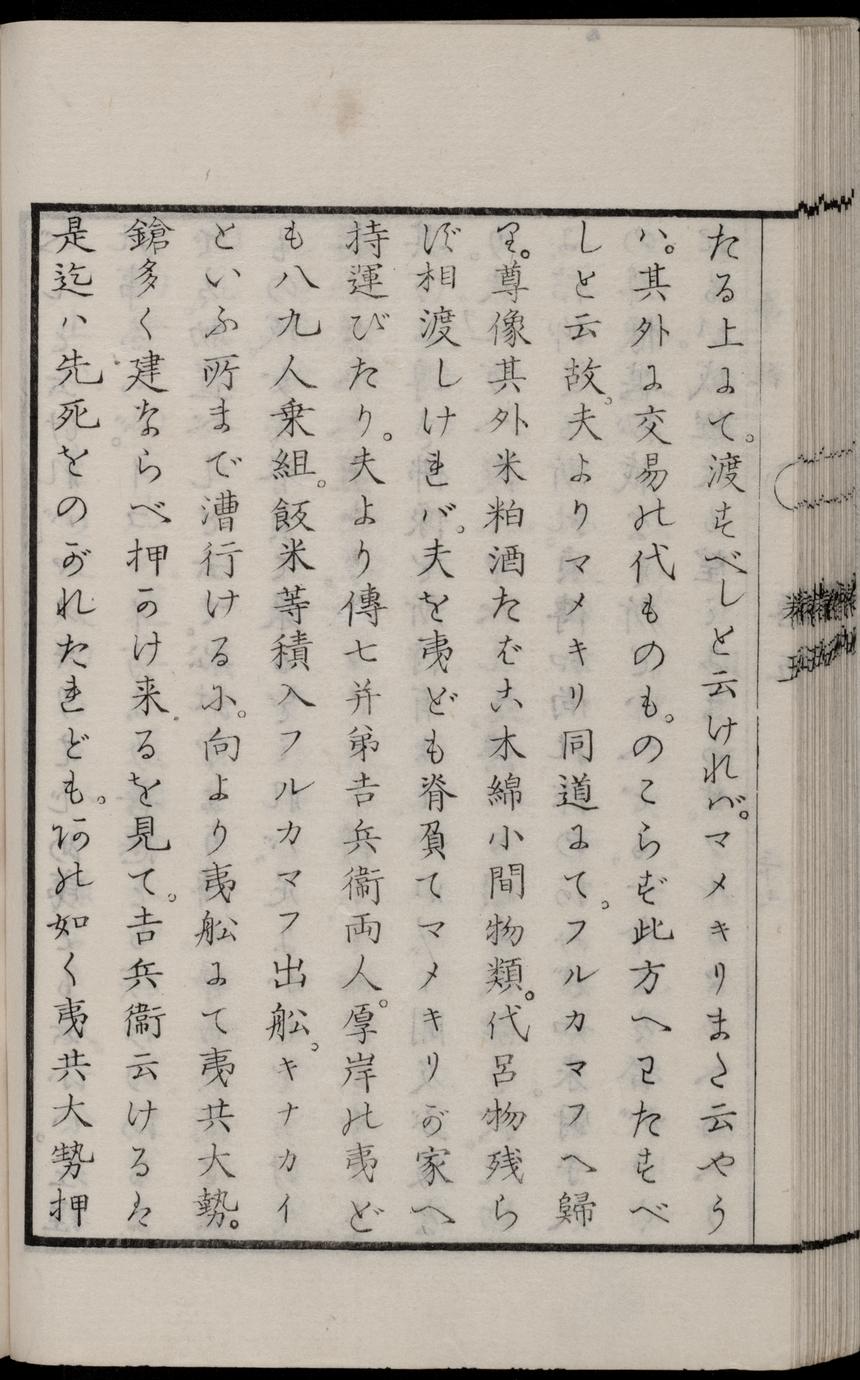 たる上にて。渡すべしと云けれバ。マメキリまた云やう
ハ。其外に交易の代ものも。のこらず此方へわたすべ
しと云故。夫よりマメキリ同道にて。フルカマフへ歸
り。尊像其外米粕酒たばこ木綿小間物類。代呂物残ら
ず相渡しけれバ。夫を夷ども脊負てマメキリが家へ
持運びたり。夫より傳七并弟吉兵衞両人。厚岸の夷ど
も八九人乗組。飯米等積入フルカマフ出舩。キナカイ
といふ所まで漕行けるに。向より夷舩にて夷共大勢。
鎗多く建ならべ押かけ来るを見て。吉兵衞云けるは
是迄ハ先死をのがれたれども。何の如く夷共大勢押